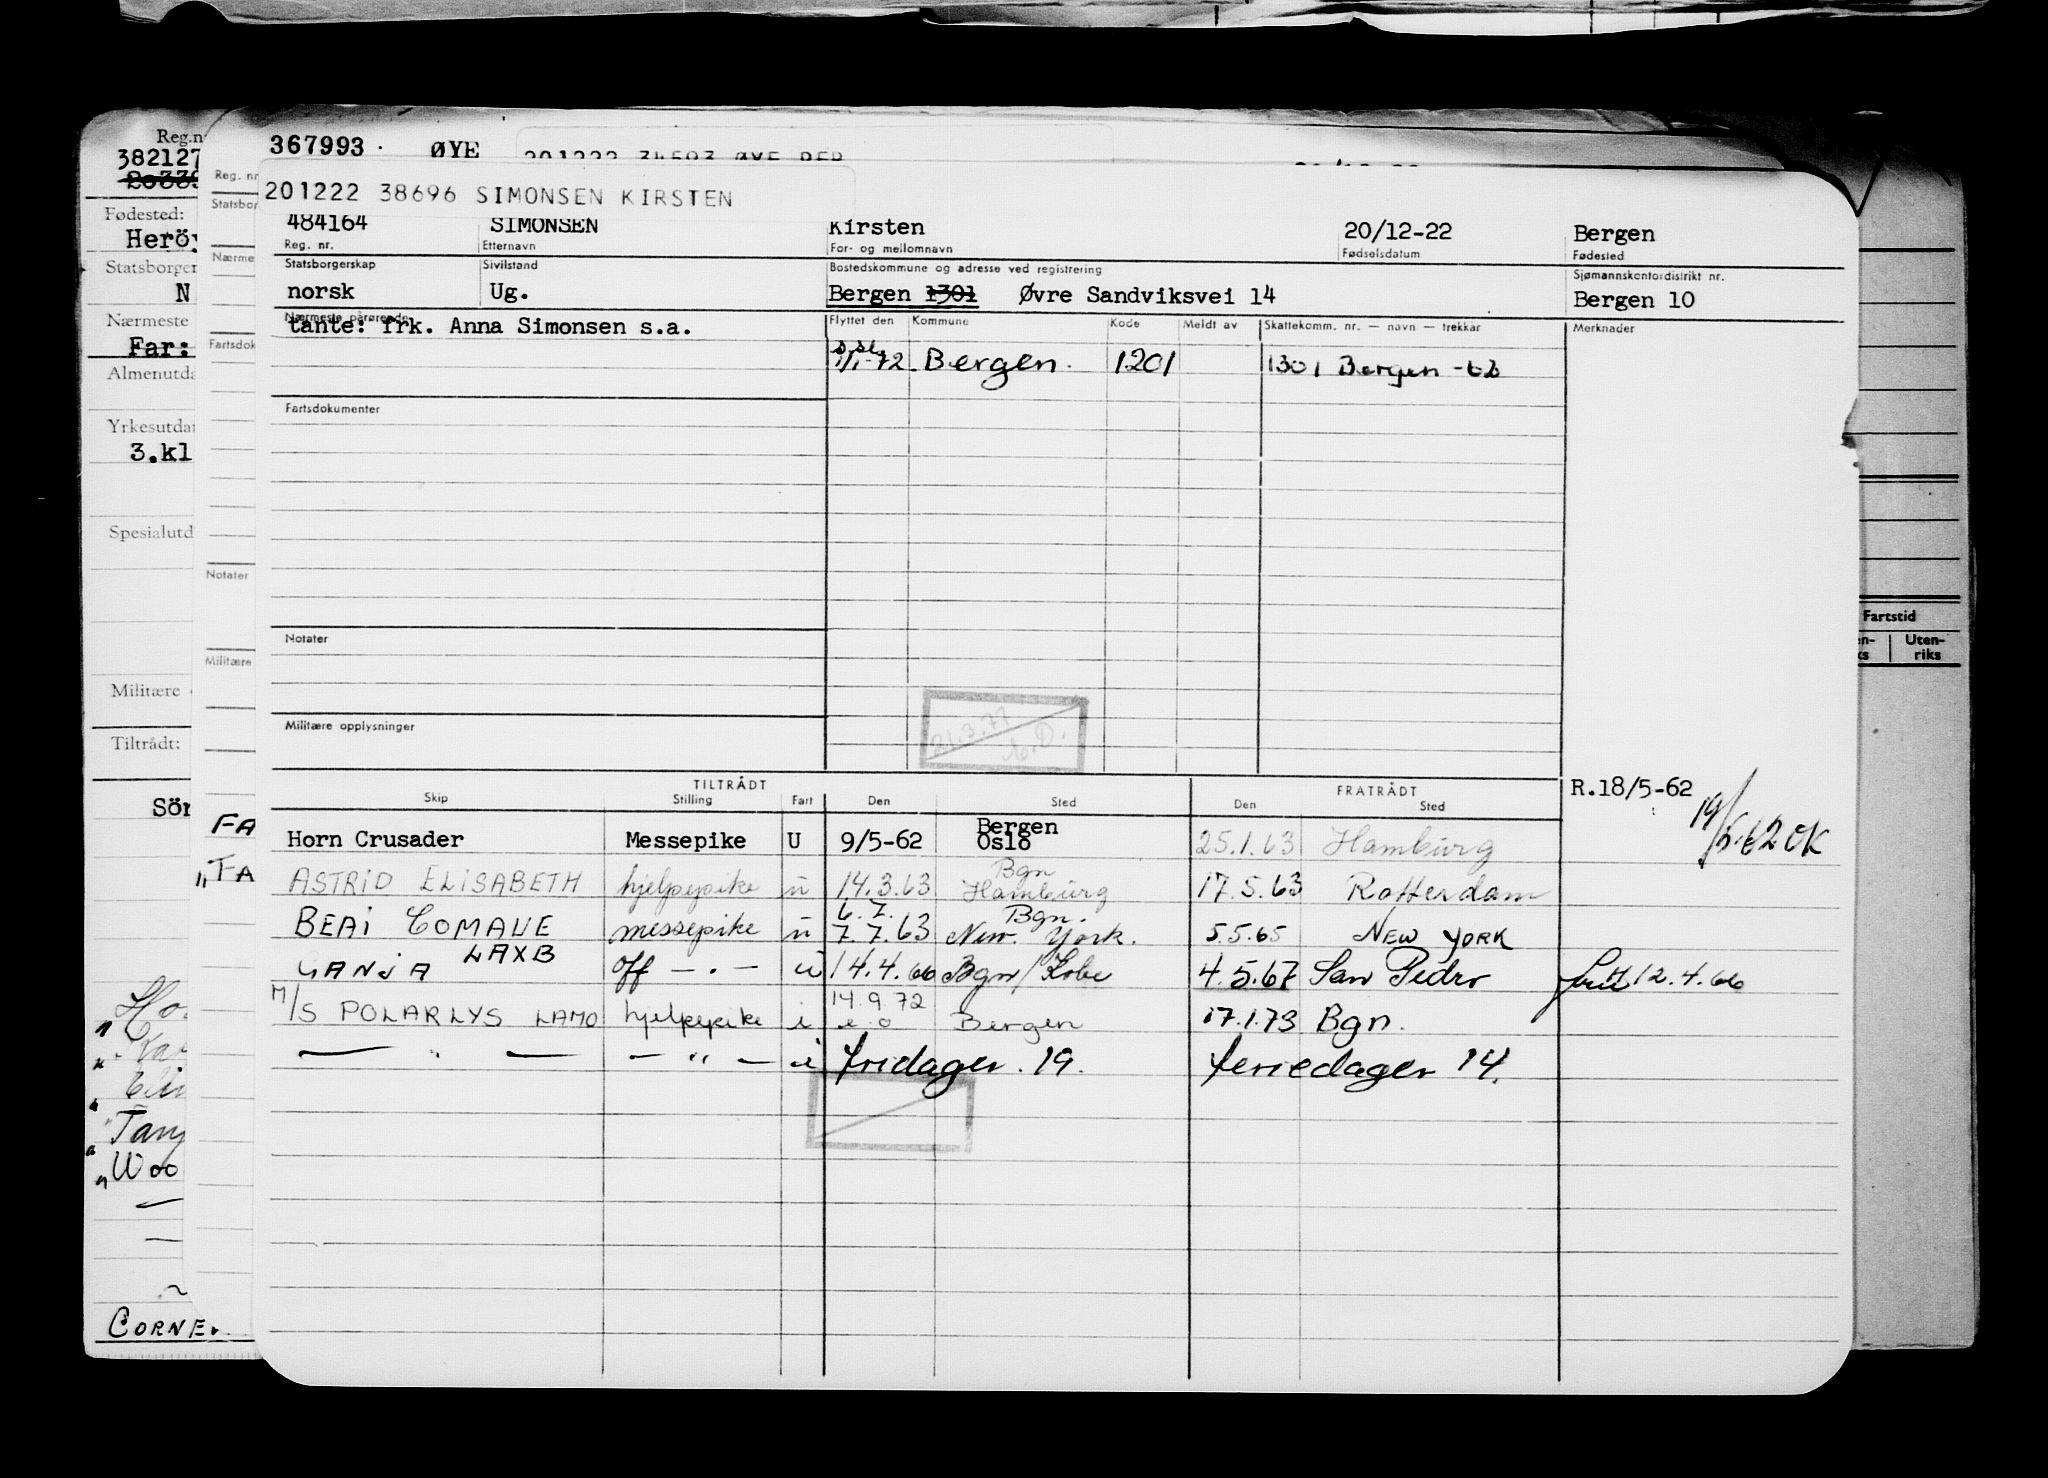 Reg.n
382127
Fødested:
Statsborger
N
Nærmeste
Far:
Almenutda
Yrkesutdan
3.kl
Spesialutd
Militære
Tiltrådt:
Sör
Tany
Woo
CORNE
Reg. nr
Statsbor
Nærme
Fartsdok
Notater
Militære
FA
"FA
367993 ØYE
201222 34593 ØYE PER
201222 38696 SIMONSEN KIRSTEN
484164 SIMONSEN Kirsten 20/12-22 Bergen
Reg. nr. Etternavn For- og mellomnavn Fødselsdatum Fødested
Statsborgerskap Sivilstand Bostedskommune og adresse ved registrering Sjømannskontordistrikt nr.
norsk Ug. Bergen 1301 Øvre Sandviksvei 14 Bergen 10
Nærmeste pårørende Flyttet den Kommune Kode Meldt av Skattekomm. nr. — navn — trekkår Merknader
tante: frk. Anna Simonsen s.a.
1/1-72 Bergen. 1201 1301 Bergen
Fartsdokumenter
Notater
21.3.77
Militære opplysninger
TILTRÅDT FRATRÅDT R.18/5-62
Skip Stilling Fart Den Sted Den Sted
19/5-62 OK
Bergen
Horn Crusader Messepike U 9/5-62 Oslo 25.1.63 Hamburg
Bgn
ASTRID ELISABETH hjelpepike u 14.3.63 Hamburg 17.5.63 Rotterdam
6.7. Bgn.
BEAI COMAUE messepike u 7.7.63 New York. 5.5.65 NEW YORK
GANJA LAXB Off — . — u 14.4.66 Bgn/Kobe 4.5.67 San Pedro 12.4.66
14.9.72
M/S POLARLYS LAMO hjelpepike i e.o Bergen 17.1.73 Bgn.
— " — — " — i fridager. 19. feriedager 14.
Fartstid
en-
ks
Uten-
riks